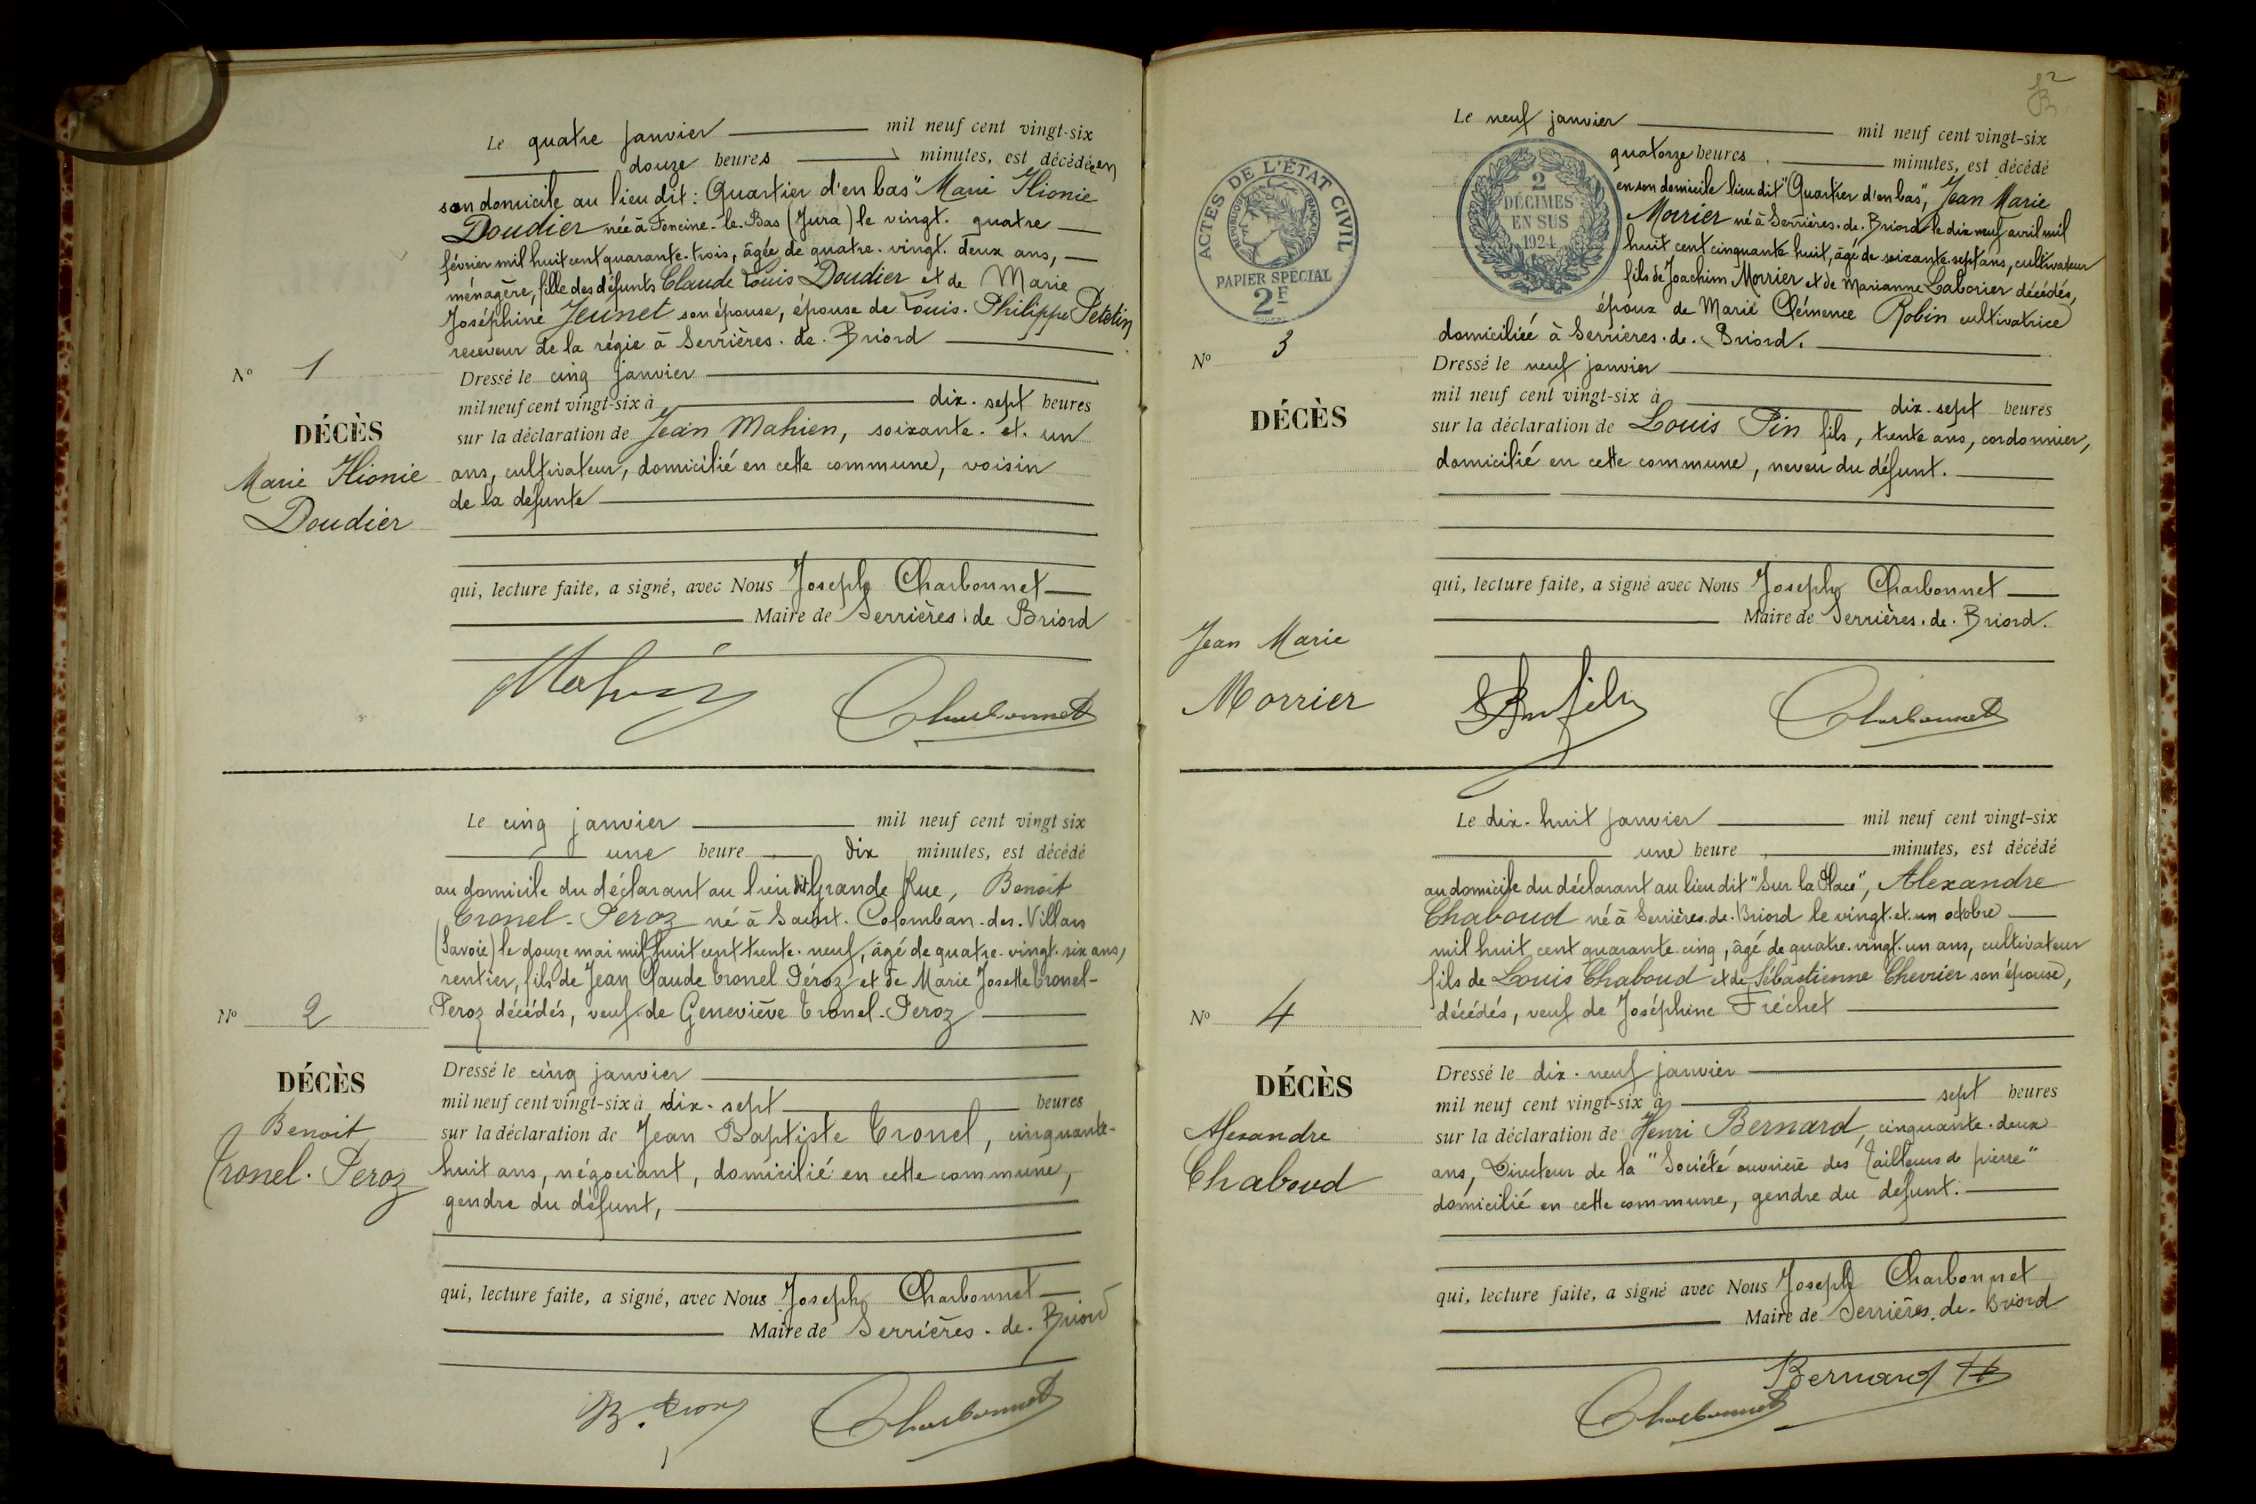 Le quatre janvier mil neuf cent vingt-six
douze heures minutes, est décédée en
son domicile au lieu dit : Quartier d'en bas" Marie Ilionie
Doudier née à Foncine-le-Bas (Jura) le vingt-quatre
février mil huit cent quarante-trois, âgée de quatre-vingt-deux ans,
ménagère, fille des défunts Claude Louis Doudier et de Marie
Joséphine Jeunet son épouse, épouse de Louis-Philippe Petetin
receveur de la régie à Serrières-de-Briord
Nº 1
Dressé le cinq janvier
mil neuf cent vingt-six à dix-sept heures
DÉCÈS
sur la déclaration de Jean Mahien, soixante-et-un
Marie Ilionie
ans, cultivateur, domicilié en cette commune, voisin
de la défunte
Doudier
qui, lecture faite, a signé, avec Nous Joseph Charbonnet
Maire de Serrières-de Briord
Charbonnet
Le cinq janvier mil neuf cent vingt six
une heure dix minutes, est décédé
au domicile du déclarant au lieu dit Grande Rue, Benoit
Tronel-Peroz né à Saint-Colomban-des-Villars
(Savoie) le douze mai mil huit cent trente-neuf, âgé de quatre-vingt-six ans,
rentier, fils de Jean Claude Tronel Péroz et de Marie Josette Tronel-
Peroz décédés, veuf de Geneviève Tronel-Peroz
Nº 2
Dressé le cinq janvier
DÉCÈS
mil neuf cent vingt-six à dix-sept heures
Benoit
sur la déclaration de Jean Baptiste Tronel, cinquante-
Tronel-Peroz
huit ans, négociant, domicilié en cette commune,
gendre du défunt,
qui, lecture faite, a signé, avec Nous Joseph Charbonnet
Maire de Serrières-de-Briord
Charbonnet
Le neuf janvier mil neuf cent vingt-six
quatorze heures minutes, est décédé
en son domicile lieu dit "Quartier d'en bas", Jean Marie
Morrier né à Serrières-de-Briord le dix neuf avril mil
huit cent cinquante huit, âgé de soixante-sept ans, cultivateur
fils de Joachim Morrier et de Marianne Laborier décédés,
époux de Marie Clémence Robin cultivatrice
domiciliée à Serrières-de-Briord.
ACTES DE L'ÉTAT CIVIL
RÉPUBLIQUE FRANÇAISE
PAPIER SPÉCIAL
2F
2
DÉCIMES
EN SUS
1924
Nº 3
Dressé le neuf janvier
mil neuf cent vingt-six à dix-sept heures
DÉCÈS
sur la déclaration de Louis Pin fils, trente ans, cordonnier,
domicilié en cette commune, neveu du défunt.
qui, lecture faite, a signé avec Nous Joseph Charbonnet
Maire de Serrières-de-Briord.
Jean Marie
Morrier
Charbonnet
Le dix-huit janvier mil neuf cent vingt-six
une heure minutes, est décédé
au domicile du déclarant au lieu dit "Sur la Place", Alexandre
Chaboud né à Serrières-de-Briord le vingt-et-un octobre
mil huit cent quarante cinq, âgé de quatre-vingt-un ans, cultivateur
fils de Louis Chaboud et de Sébastienne Chevrier son épouse,
décédés, veuf de Joséphine Fréchet
Nº 4
Dressé le dix-neuf janvier
DÉCÈS
mil neuf cent vingt-six à sept heures
Alexandre
sur la déclaration de Henri Bernard, cinquante-deux
Chaboud
ans, Directeur de la "Société ouvrière des Tailleurs de pierre"
domicilié en cette commune, gendre du défunt.
qui, lecture faite, a signé avec Nous Joseph Charbonnet
Maire de Serrières-de-Briord
Bernard H
Charbonnet